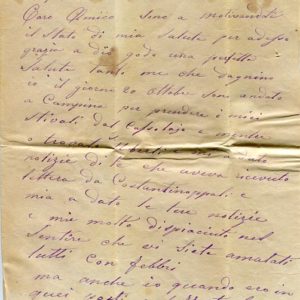 Caro Amico sono a motivandoti
il Stato di mia Salute per adesso
grazie a dio godo una perfetta
Salute tanto me che dagnino
io il giorno 20 ottobre sono andato
a Campino per prendere i miei
Stivali dal Calsolajo e mentre
o trovato e mi a dato
notizie di te che aveva ricevuto
lettera da Costantinoppoli e
mia a dato le tue notizie
e mie molto dispiaciuto nel
Sentire che vi siete amalati
tutti con febbri
ma anche io quando ero in
quei